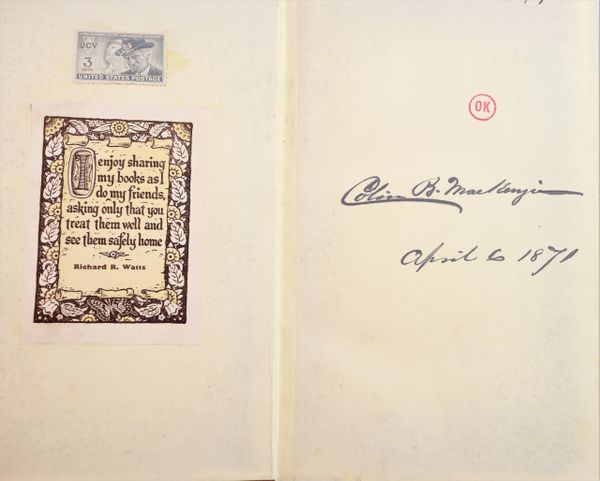 UCV
3
UNITED STATES POSTAGE
I enjoy sharing
my books as I
do my friends,
asking only that you
treat them well and
see them safely home
Richard R. Watts
OK
Colin B. MacKenzie
April 6 1871